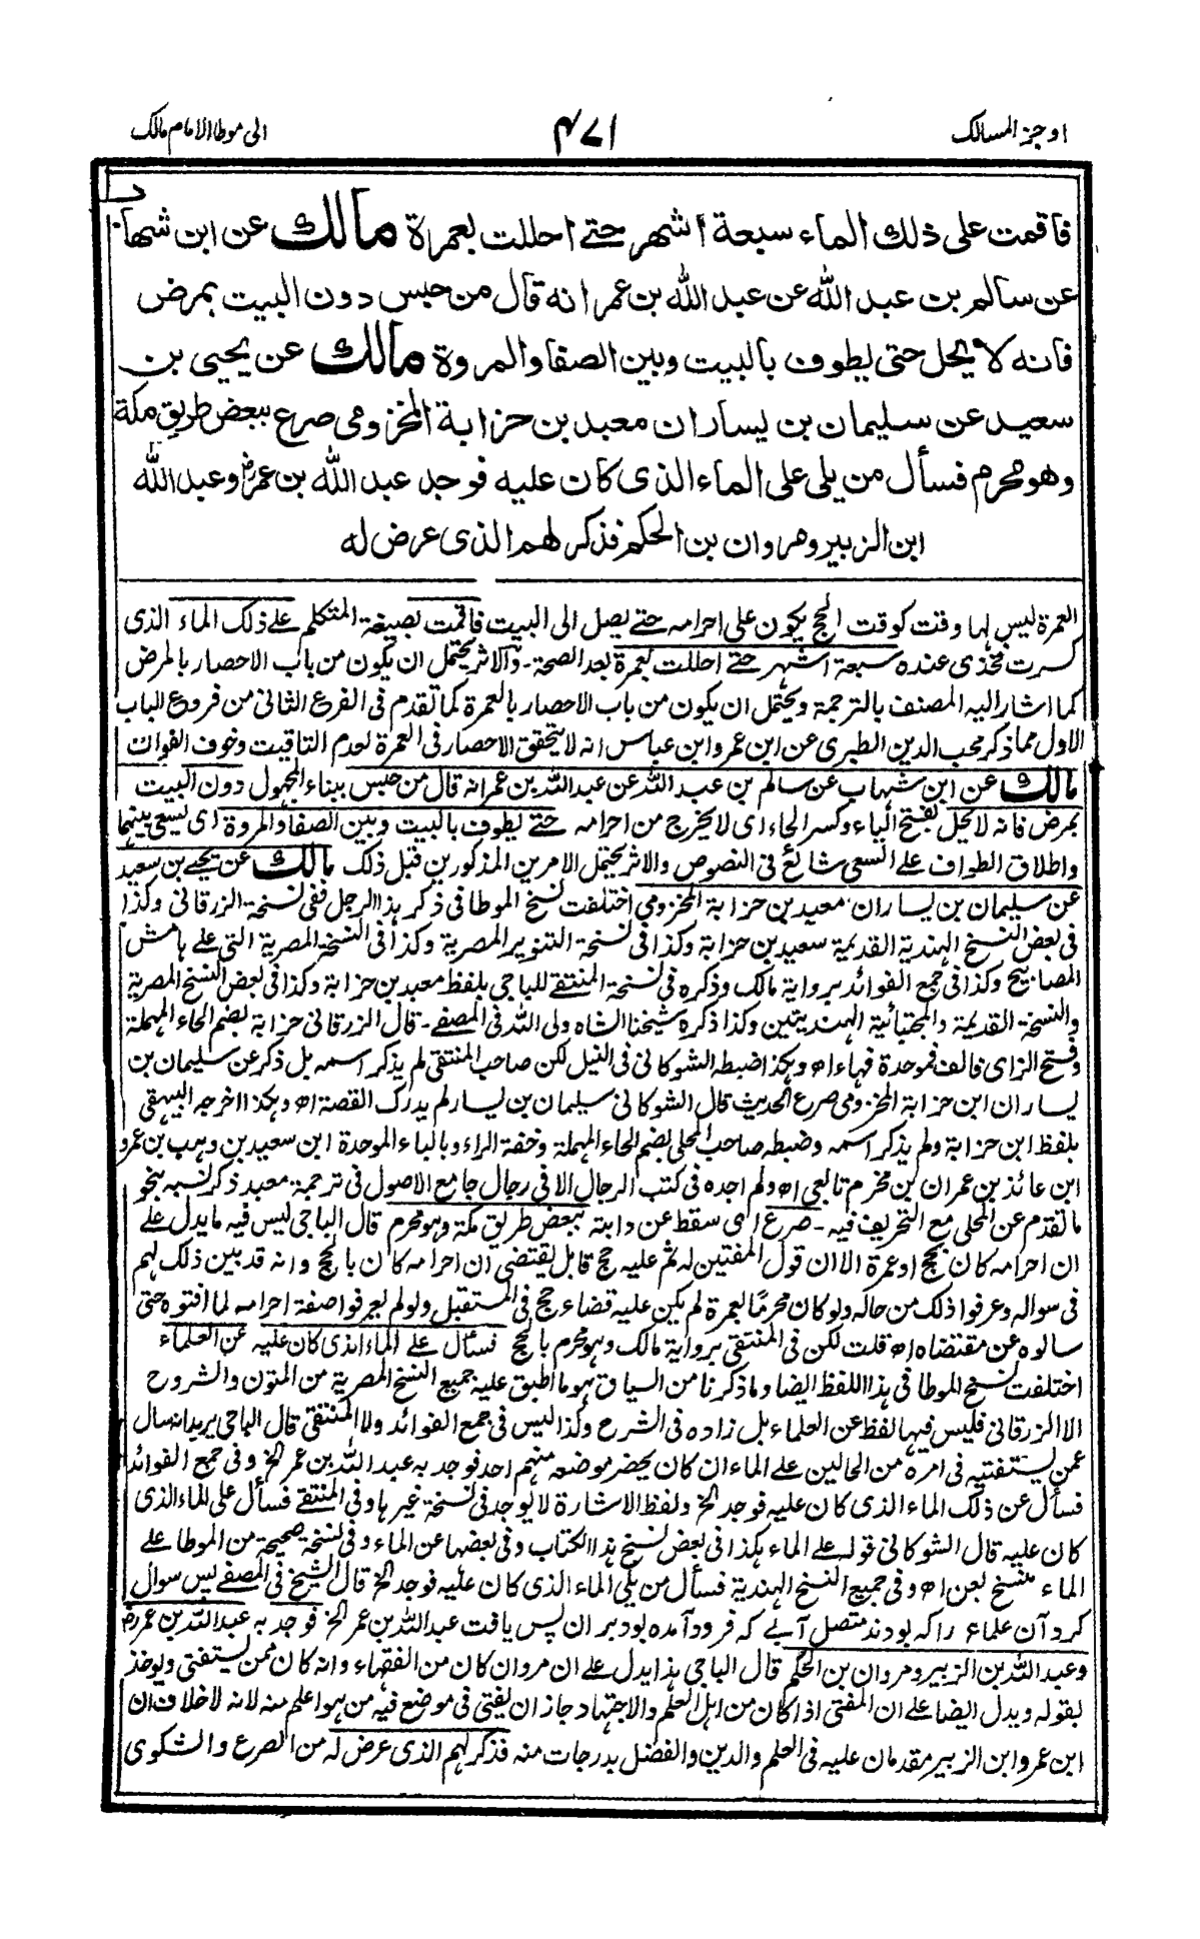 اوجز المسالك
٤٧١
الى موطا الامام مالك
فاقمت على ذلك الماء سبعة أشهر حتے احللت بعمرة مالك عن ابن شهاب
عن سالم بن عبد الله عن عبد الله بن عمر انه قال من حبس دون البيت بمرض
فانه لا يحل حتى يطوف بالبيت وبين الصفا والمروة مالك عن يحيى بن
سعيد عن سليمان بن يسار ان معبد بن حزابة المخزومى صرع ببعض طريق مكة
وهو محرم فسأل من يلى على الماء الذى كان عليه فوجد عبد الله بن عمرؓ وعبد الله
ابن الزبير ومروان بن الحكم فذكر لهم الذى عرض له
العمرة ليس لها وقت كوقت الحج يكون على احرامه حتے يصل الى البيت فاقمت بصيغة المتكلم علے ذلك الماء الذى
كسرت فخذى عنده سبعة اشهر حتے احللت بعمرة بعد الصحة ۔ والاثر يحتمل ان يكون من باب الاحصار بالمرض
كما اشار اليه المصنف بالترجمة ويحتمل ان يكون من باب الاحصار بالعمرة كما تقدم فى الفرع الثانى من فروع الباب
الاول مما ذكر محب الدين الطبرى عن ابن عمر وابن عباس انه لا يتحقق الاحصار فى العمرة لعدم التاقيت وخوف الفوات
مالك عن ابن شهاب عن سالم بن عبد الله عن عبد الله بن عمر انه قال من حبس ببناء المجهول دون البيت
بمرض فانه لا يحل بفتح الياء وكسر الحاء اى لا يخرج من احرامه حتے يطوف بالبيت وبين الصفا والمروة اى يسعى بينهما
واطلاق الطواف علے السعى شائع فى النصوص والاثر يحتمل الامرين المذكورين قبل ذلك مالك عن يحيے بن سعيد
عن سليمان بن يسار ان معبد بن حزابة المخزومى اختلفت نسخ الموطا فى ذكر هذا الرجل ففى نسخة الزرقانى وكذا
فى بعض النسخ الهندية القديمة سعيد بن حزابة وكذا فى نسخة التنوير المصرية وكذا فى النسخة المصرية التى علے هامش
المصابيح وكذا فى جمع الفوائد برواية مالك وذكره فى نسخة المنتقے للباجى بلفظ معبد بن حزابة وكذا فى بعض النسخ المصرية
والنسخة القديمة والمجتبائية الهنديتين وكذا ذكره شيخنا الشاه ولى الله فى المصفے ۔ قال الزرقانى حزابة بضم الحاء المهملة
وفتح الزاى فالف فموحدة فهاء اھ وهكذا ضبطه الشوكانى فى النيل لكن صاحب المنتقى لم يذكر اسمه بل ذكر عن سليمان بن
يسار ان ابن حزابة المخزومى صرع الحديث قال الشوكانى سليمان بن يسار لم يدرك القصة اھ وهكذا اخرجه البيهقى
بلفظ ابن حزابة ولم يذكر اسمه وضبطه صاحب المحلى بضم الحاء المهملة وخفة الراء وبالباء الموحدة ابن سعيد بن وهب بن عمرو
ابن عائذ بن عمران بن مخزم تابعى اھ ولم اجده فى كتب الرجال الا فى رجال جامع الاصول فى ترجمة معبد ذكر نسبه بنحو
ما تقدم عن المحلى مع التحريف فيه ۔ صرع اى سقط عن دابته ببعض طريق مكة وهو محرم قال الباجى ليس فيه ما يدل علے
ان احرامه كان بحج او عمرة الا ان قول المفتين له ثم عليه حج قابل يقتضى ان احرامه كان بالحج وانه قد بين ذلك لهم
فى سواله وعرفوا ذلك من حاله ولو كان محرمًا بعمرة لم يكن عليه قضاء حج فى المستقبل ولو لم يعرفوا صفة احرامه لما افتوه حتى
سالوه عن مقتضاه اھ قلت لكن فى المنتقى برواية مالك وهو محرم بالحج فسأل علے الماء الذى كان عليه عن العلماء
اختلفت نسخ الموطا فى هذا اللفظ ايضا وما ذكرنا من السياق هو ما اطبق عليه جميع النسخ المصرية من المتون والشروح
الا الزرقانى فليس فيها لفظ عن العلماء بل زاده فى الشرح وكذا ليس فى جمع الفوائد ولا المنتقى قال الباجى يريد انه سال
عمن يستفتيه فى امره من الحالين علے الماء ان كان يحضر موضعه منهم احد فوجد به عبد الله بن عمر الخ وفى جمع الفوائد
فسأل عن ذلك الماء الذى كان عليه فوجد الخ ولفظ الاشارة لا يوجد فى نسخة غيرها وفى المنتقے فسأل على الماء الذى
كان عليه قال الشوكانى قوله علے الماء هكذا فى بعض نسخ هذا الكتاب وفى بعضها عن الماء وفى نسخة صحيحة من الموطا علے
الماء بعن اھ وفى جميع النسخ الهندية فسأل من يلى الماء الذى كان عليه فوجد الخ قال الشيخ فى المصفے پس سوال
كرد آن علماء را كه بودند متصل آبے كه فرود آمده بود بر ان پس يافت عبد الله بن عمر الخ فوجد به عبد الله بن عمرؓ
وعبد الله بن الزبير ومروان بن الحكم قال الباجى هذا يدل علے ان مروان كان من الفقهاء وانه كان ممن يستفتى ويوخذ
بقوله ويدل ايضا علے ان المفتى اذا كان من اهل العلم والاجتهاد جاز ان يفتى فى موضع فيه من هو اعلم منه لانه لا خلاف ان
ابن عمر وابن الزبير مقدمان عليه فى العلم والدين والفضل بدرجات منه فذكر لهم الذى عرض له من الصرع والشكوى